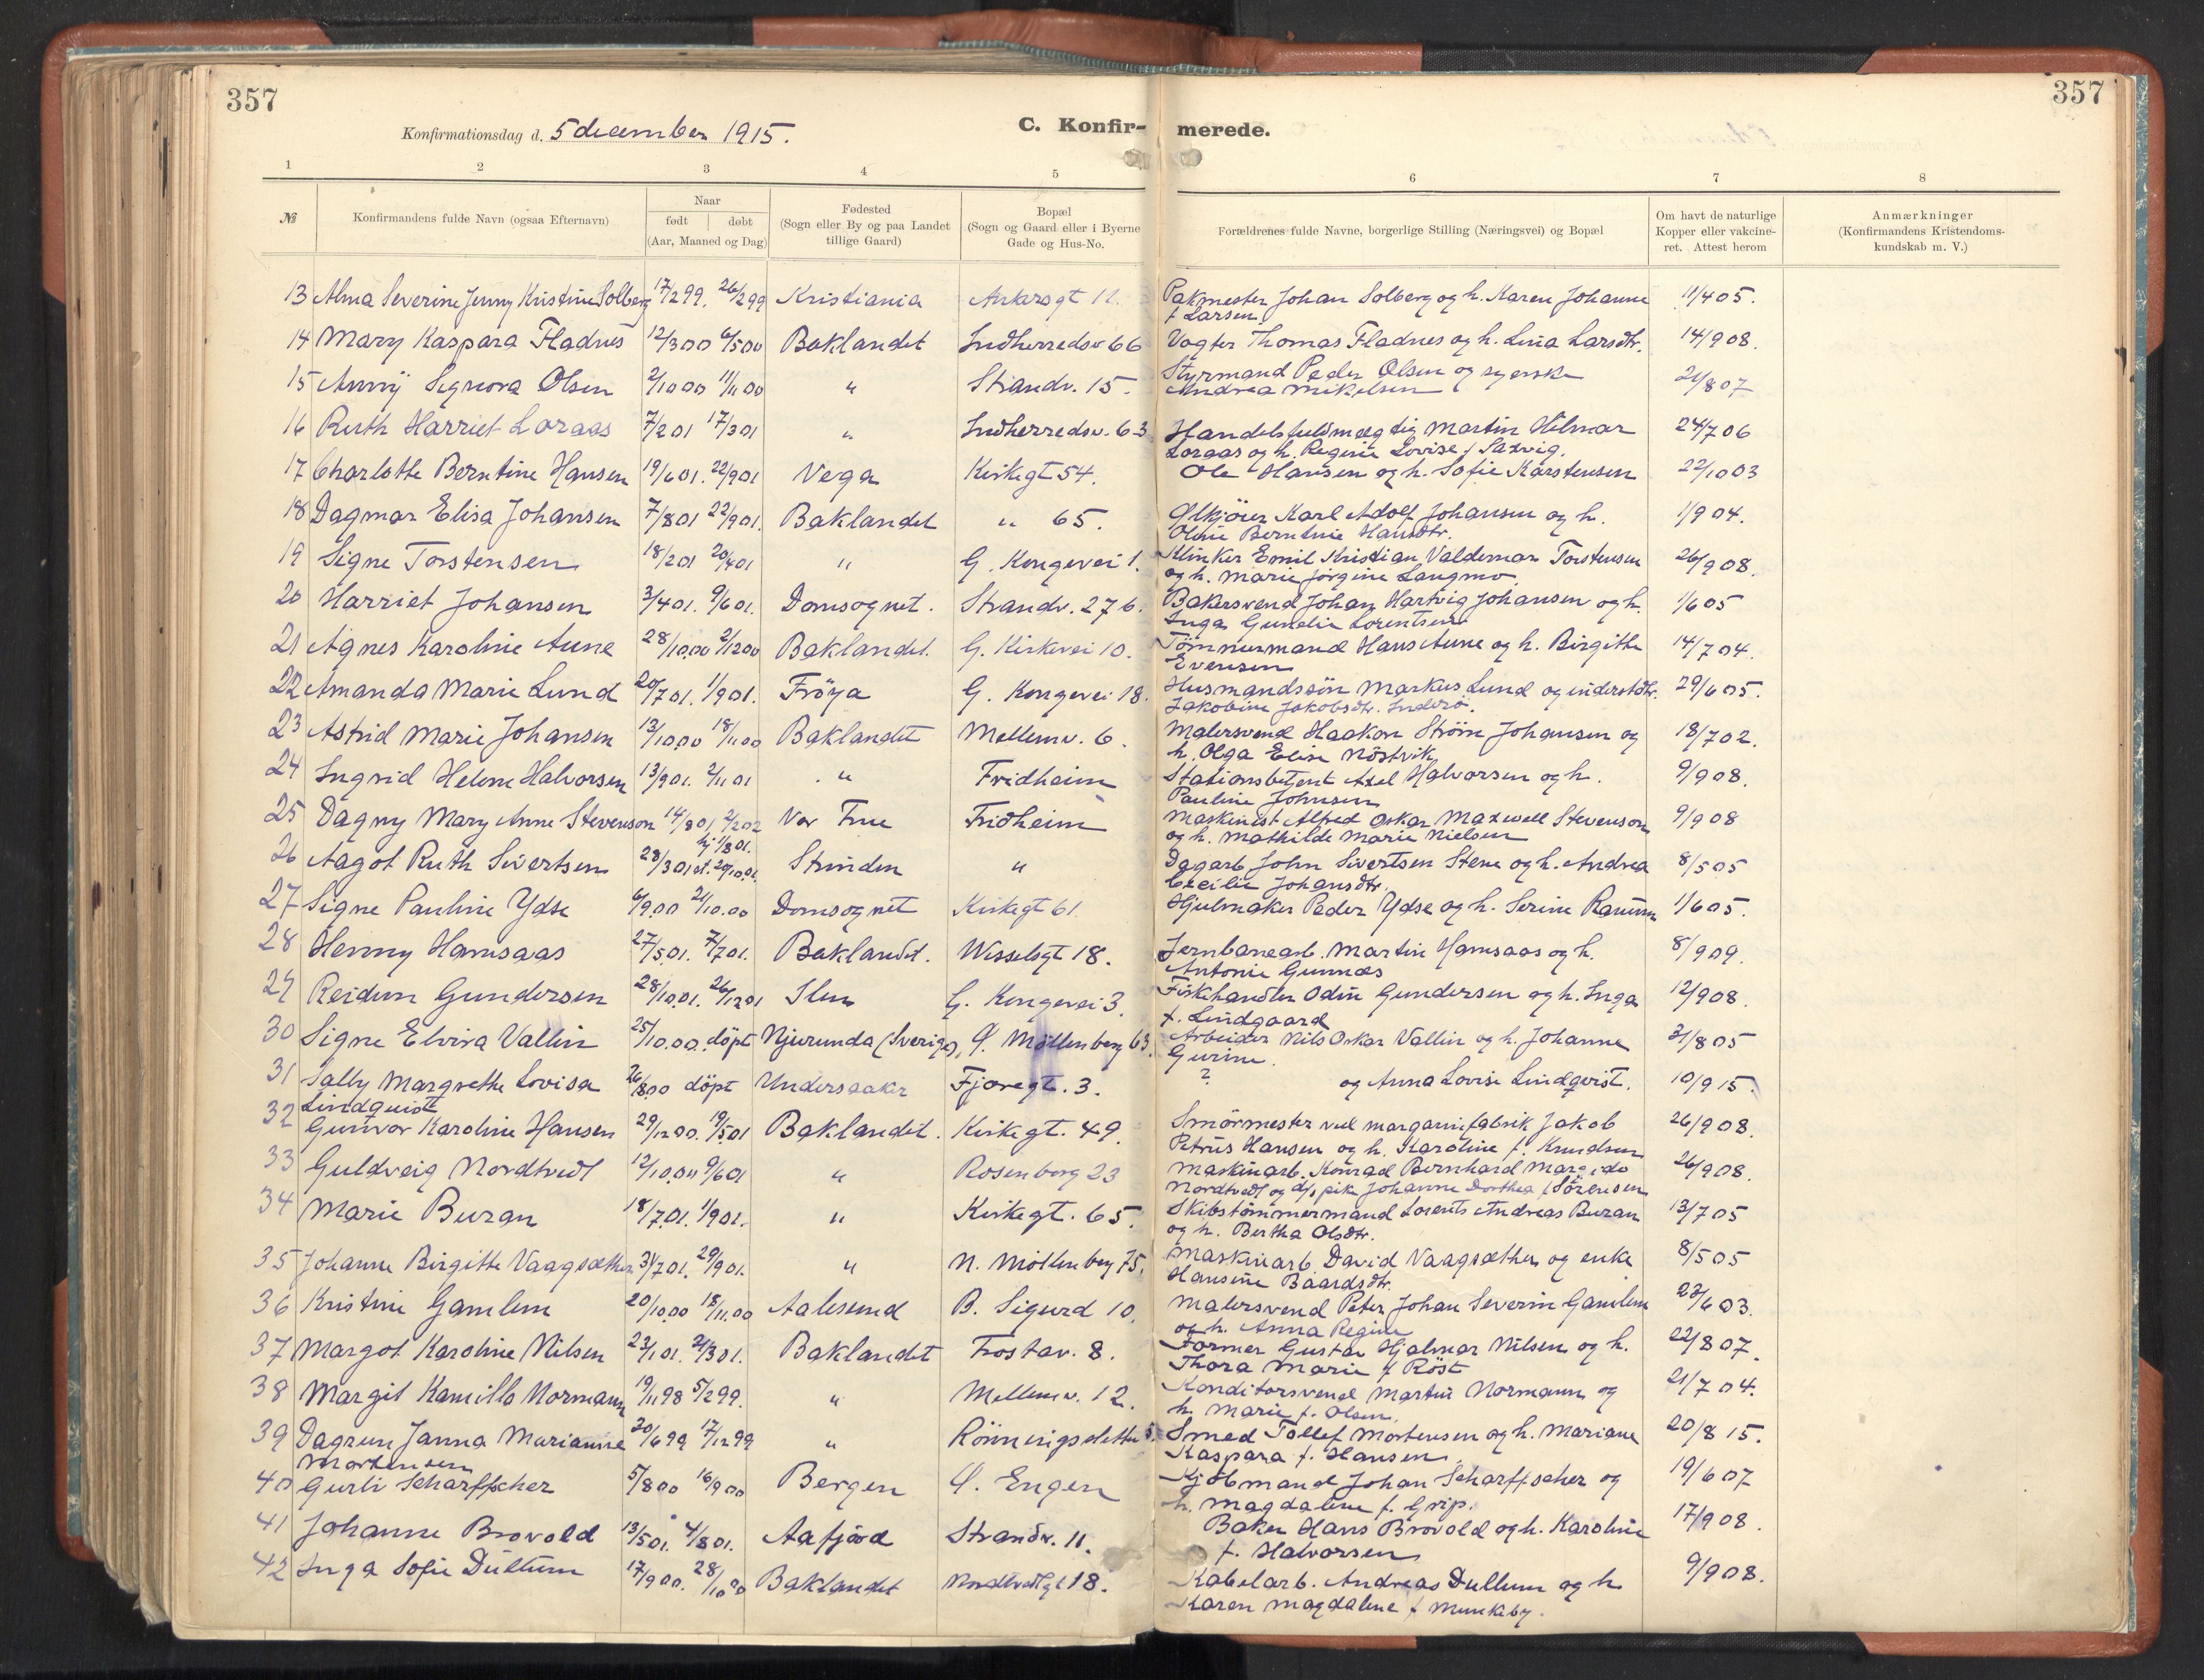 357
357
Konfirmationsdag d. 5 december 1915.
C. Konfir-
merede.
1 2 3 4 5 6 7 8
№ Konfirmandens fulde Navn (ogsaa Efternavn) Naar født døbt (Aar, Maaned og Dag) Fødested (Sogn eller By og paa Landet tillige Gaard) Bopæl (Sogn og Gaard eller i Byerne Gade og Hus-No. Forældrenes fulde Navne, borgerlige Stilling (Næringsvei) og Bopæl Om havt de naturlige Kopper eller vakcineret. Attest herom Anmærkninger (Konfirmandens Kristendomskundskab m. V.)
13 Alma Severine Jenny Kristine Solberg 17/2 99. 26/2 99 Kristiania Ankersgt 12. Pakmester Johan Solberg og h. Karen Johanne 11/4 05.
f Larsen
14 Mary Kaspara Fladnes 12/3 00 6/5 00 Baklandet Indherredsv 66 Vogter Thomas Fladnes og h. Lina Larsdtr. 14/9 08.
15 Anny Signora Olsen 2/10 00 11/11 00 " Strandv. 15. Styrmand Peder Olsen og syerske 21/8 07
Andrea Mikelsen
16 Ruth Harriet Loraas 7/2 01 17/3 01 " Indherredsv. 63 Handelsfuldmægtig Martin Hilmar 24/7 06
Loraas og h. Regine Lovise f Saxvig.
17 Charlotte Berntine Hansen 19/6 01. 22/9 01 Vega Kirkegt 54. Ole Hansen og h. Sofie Karstensen 22/10 03
18 Dagmar Elisa Johansen 7/8 01 22/9 01. Baklandet " 65. Ølkjører Karl Adolf Johansen og h. 1/9 04.
Oline Berntine Hansdtr.
19 Signe Torstensen 18/2 01 20/4 01 " G. Kongevei 1. Klinker Emil Kristian Valdemar Torstensen 26/9 08.
og h. Marie Jörgine Langmo
20 Harriet Johansen 3/4 01. 9/6 01. Domsognet. Strandv. 27 b. Bakersvend Johan Hartvig Johansen og h. 1/6 05
Inga Gunelie Lorentsen
21 Agnes Karoline Aune 28/10 00 2/12 00 Baklandet. G. Kirkevei 10. Tömmermand Hans Aune og h. Birgitte 14/7 04.
Evensen
22 Amanda Marie Lund 20/7 01. 1/9 01. Fröya G. Kongevei 18. Husmandssön Markus Lund og inderstdtr. 29/6 05.
Jakobine Jakobsdtr. Inderö.
23 Astrid Marie Johansen 13/10 00 18/11 00 Baklandet Mellemv. 6. Malersvend Haakon Ström Johansen og 18/7 02.
h. Olga Elise Nöstvik
24 Ingrid Helene Halvorsen 13/9 01. 2/11 01 " Fridheim Stationsbetjent Axel Halvorsen og h. 9/9 08.
Pauline Johnsen
25 Dagny Mary Anne Stevenson 14/8 01 2/2 02 Vor Frue Fridheim Maskinist Alfred Oskar Maxwell Stevenson 9/9 08
og h. Mathilde Marie Nielsen
26 Aagot Ruth Sivertsen 28/3 01 hj 1/8 01. st. 29/10 01. Strinden " Dagarb John Sivertsen Stene og h. Andrea 8/5 05
Cecilie Johansdtr.
27 Signe Pauline Ydse 6/9 00 21/10 00 Domsognet Kirkegt 61. Hjulmaker Peder Ydse og h. Serine Ranum 1/6 05.
28 Henny Hamsaas 27/5 01. 7/7 01. Baklandet. Wesselsgt 18. Jernbanearb. Martin Hamsaas og h. 8/9 09.
Antonie Gunnæs
29 Reidun Gundersen 28/10 01. 26/12 01 Ilen G. Kongevei 3. Fiskhandler Odin Gundersen og h. Inga 12/9 08.
f. Lindgaard
30 Signe Elvira Vallin 25/10 00. döpt Njurunda (Sverige), Ø. Möllenberg 63. Arbeider Nils Oskar Vallin og h. Johanne 31/8 05
Gurine.
31 Sally Margrethe Lovisa 26/8 00 döpt Undersaaker Fjæregt. 3. ? og Anna Lovise Lindqvist. 10/9 15.
Lindquist
32 Gunvor Karoline Hansen 29/12 00. 19/5 01 Baklandet. Kirkegt. 49. Smörmester ved margarinfabrik Jakob 26/9 08.
Petrus Hansen og h. Karoline f. Knudsen
33 Guldveig Nordtvedt 12/10 00 9/6 01 " Rosenborg 23 Maskinarb. Konrad Bernhard Margido 26/9 08.
Nordtvedt og pike Johanne Dorthea f Sörensen
34 Marie Buran 18/7 01. 1/9 01. " Kirkegt. 65. Skibstömmermand Lorents Andreas Buran 13/7 05
og h. Bertha Olsdtr.
35 Johanne Birgitte Vaagsæther 31/7 01. 29/9 01. " N. Möllenberg 75. Maskinarb David Vaagsæther og enke 8/5 05
Hansine Baardsdtr.
36 Kristine Gamlem 20/10 00 18/11 00 Aalesund B. Sigurd 10. Malersvend Peter Johan Severin Gamlem 23/6 03.
og h. Anna Regine
37 Margot Karoline Nilsen 23/1 01. 21/3 01. Baklandet Frostav. 8. Former Gustav Hjalmar Nilsen og h. 22/8 07.
Thora Marie f Röst
38 Margit Kamilla Normann 19/11 98 5/2 99. " Mellemv. 12. Konditorsvend Martin Normann og 21/7 04.
h. Marie f. Olsen.
39 Dagrun Janna Marianne 20/6 99 17/12 99 " Rönningsletta 5. Smed Tollef Mortensen og h. Mariane 20/8 15.
Mortensen Kaspara f. Hansen
40 Gurli Scharffscher 5/8 00 16/9 00 Bergen Ø. Engen Kjöbmand Johan Scharffscher og 19/6 07
h. Magdalene f. Grip.
41 Johanne Brovold 13/5 01. 4/8 01. Aafjord Strandv. 11. Baker Hans Brovold og h. Karoline 17/9 08.
f. Halvorsen
42 Inga Sofie Dullum 17/9 00. 28/10 00 Baklandet Nordtvedtgt 18. Kabelarb. Andreas Dullum og h. 9/9 08.
Karen Magdalene f Munkeby.